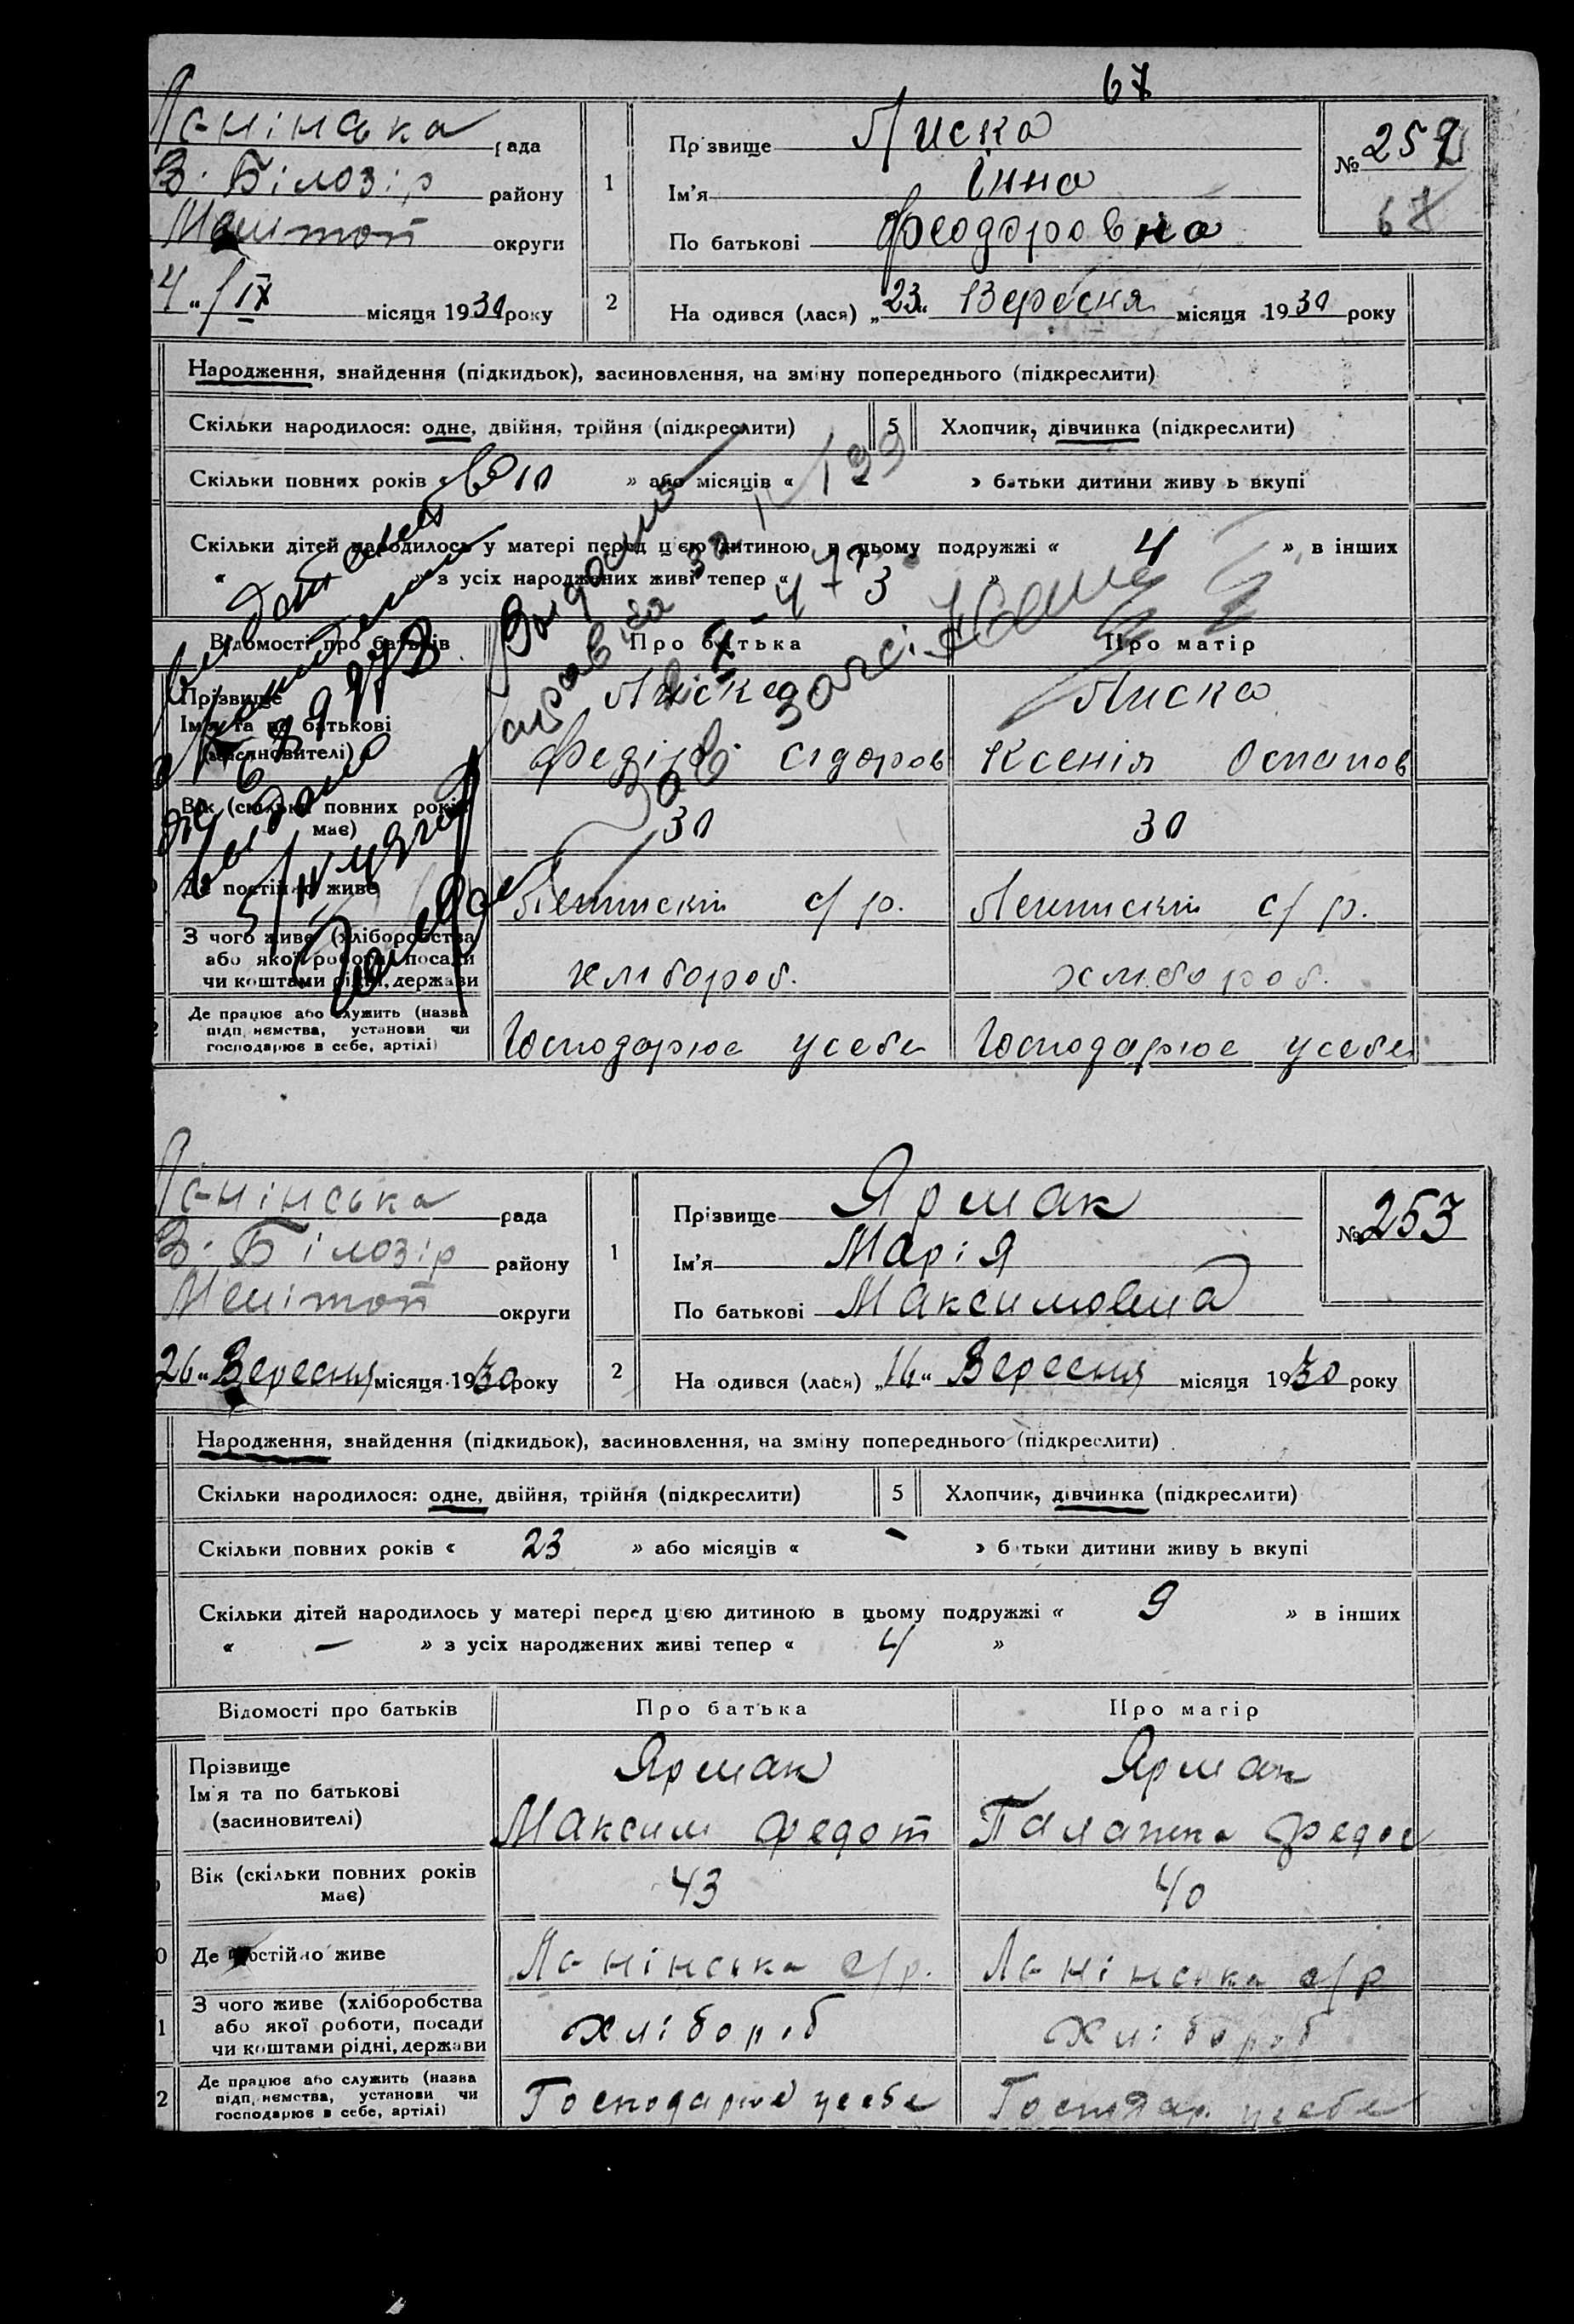 67
Ленінська рада
В. Білозір району
Мелітоп округи
4 " IX місяця 1930 року
1
Прізвище Лиска
Ім'я Інна
По батькові Феодоровна
№ 252
67
2
На одився (лася) „23" Вересня місяця 1930 року
Народження, знайдення (підкидьок), засиновлення, на зміну попереднього (підкреслити)
Скільки народилося: одне, двійня, трійня (підкреслити) 5 Хлопчик, дівчинка (підкреслити)
Скільки повних років « 10 » або місяців « » батьки дитини живу ь вкупі
Скільки дітей народилось у матері перед цією дитиною в цьому подружжі « 4 » в інших
« » з усіх народжених живі тепер « 3 »
Відомості про батьків Про батька Про матір
Прізвище Лиска Лиска
Ім'я та по батькові
(засиновителі) Федір Сідоров Ксенія Остапов
Вік (скільки повних років
має) 30 30
Де постійно живе с/р. с/р.
З чого живе (хліборобства
або якої роботи, посади
чи коштами рідні, держави хлібороб. хлібороб.
Де працює або служить (назва
підп. немства, установи чи
господарює в себе, артілі) Господарює усебе Господарює усебе
Ленінська рада
В. Білозір району
Мелітоп округи
26 " Вересня місяця 1930 року
1
Прізвище Ярмак
Ім'я Марія
По батькові Максимовна
№ 253
2
На одився (лася) „16" Вересня місяця 1930 року
Народження, знайдення (підкидьок), засиновлення, на зміну попереднього (підкреслити)
Скільки народилося: одне, двійня, трійня (підкреслити) 5 Хлопчик, дівчинка (підкреслити)
Скільки повних років « 23 » або місяців « - » б тьки дитини живу ь вкупі
Скільки дітей народилось у матері перед цією дитиною в цьому подружжі « 9 » в інших
« — » з усіх народжених живі тепер « 4 »
Відомості про батьків Про батька Про матір
Прізвище Ярмак Ярмак
Ім'я та по батькові
(засиновителі) Максим Федот Палажка Федос
Вік (скільки повних років
має) 43 40
0 Де постійно живе Ленінська с/р. Ленінська с/р
З чого живе (хліборобства
1 або якої роботи, посади
чи коштами рідні, держави хлібороб хлібороб
Де працює або служить (назва
2 підп. немства, установи чи
господарює в себе, артілі) Господарює усебе Господар. усебе